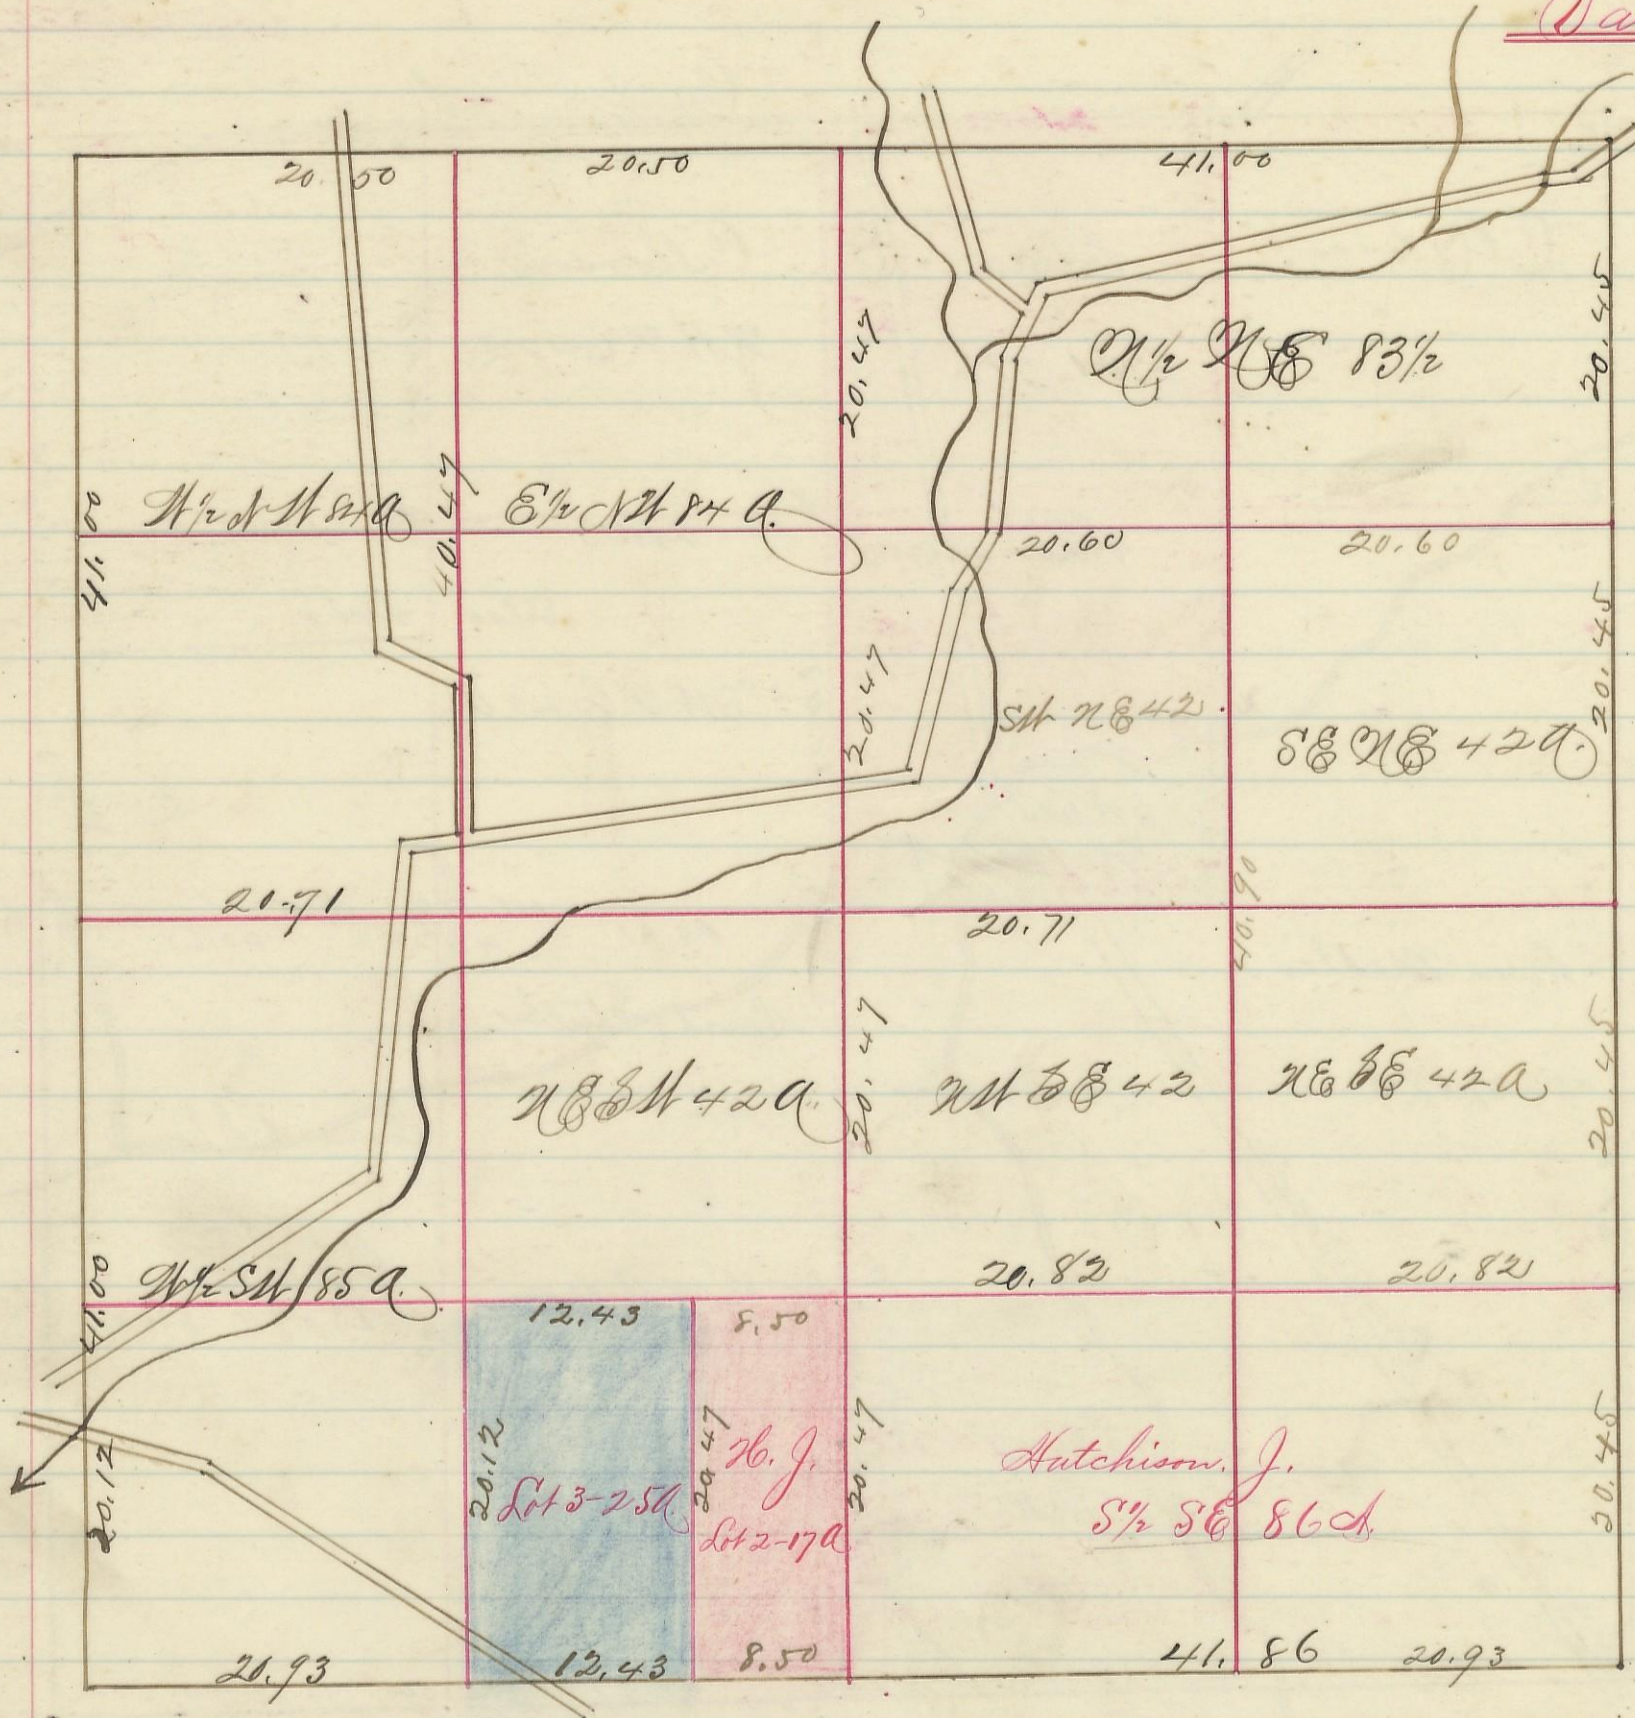 20.50
20.50
41.00
20.47
20.45
N½ NE 83½
W½ NW 84 A
40.47
E½ NW 84 A.
41.00
20.60
20.60
20.47
20.45
SW NE 42
SE NE 42 A.
20.71
20.71
40.90
20.47
20.45
NE SW 42 A.
NW SE 42
NE SE 42 A
41.00
W½ SW 85 A.
20.82
20.82
12.43
8.50
20.12
20.12
Lot 3-25A
20.47
H. J.
Lot 2-17A
20.47
Hutchison. J.
S½ SE 86 A.
20.45
20.93
12.43
8.50
41.86
20.93